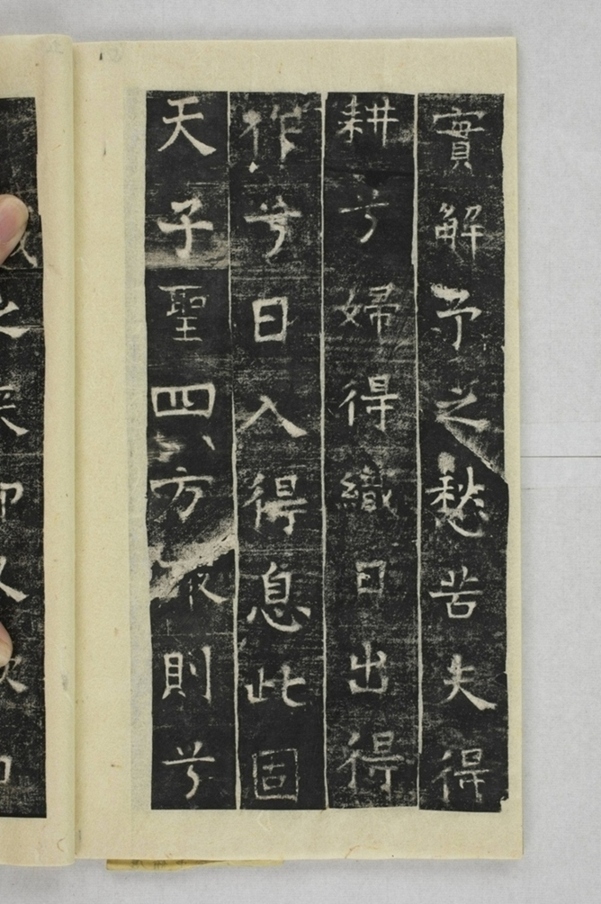 實解予之愁苦夫得
耕兮婦得織日出得
作兮日入得息此固
天子聖四方取則兮